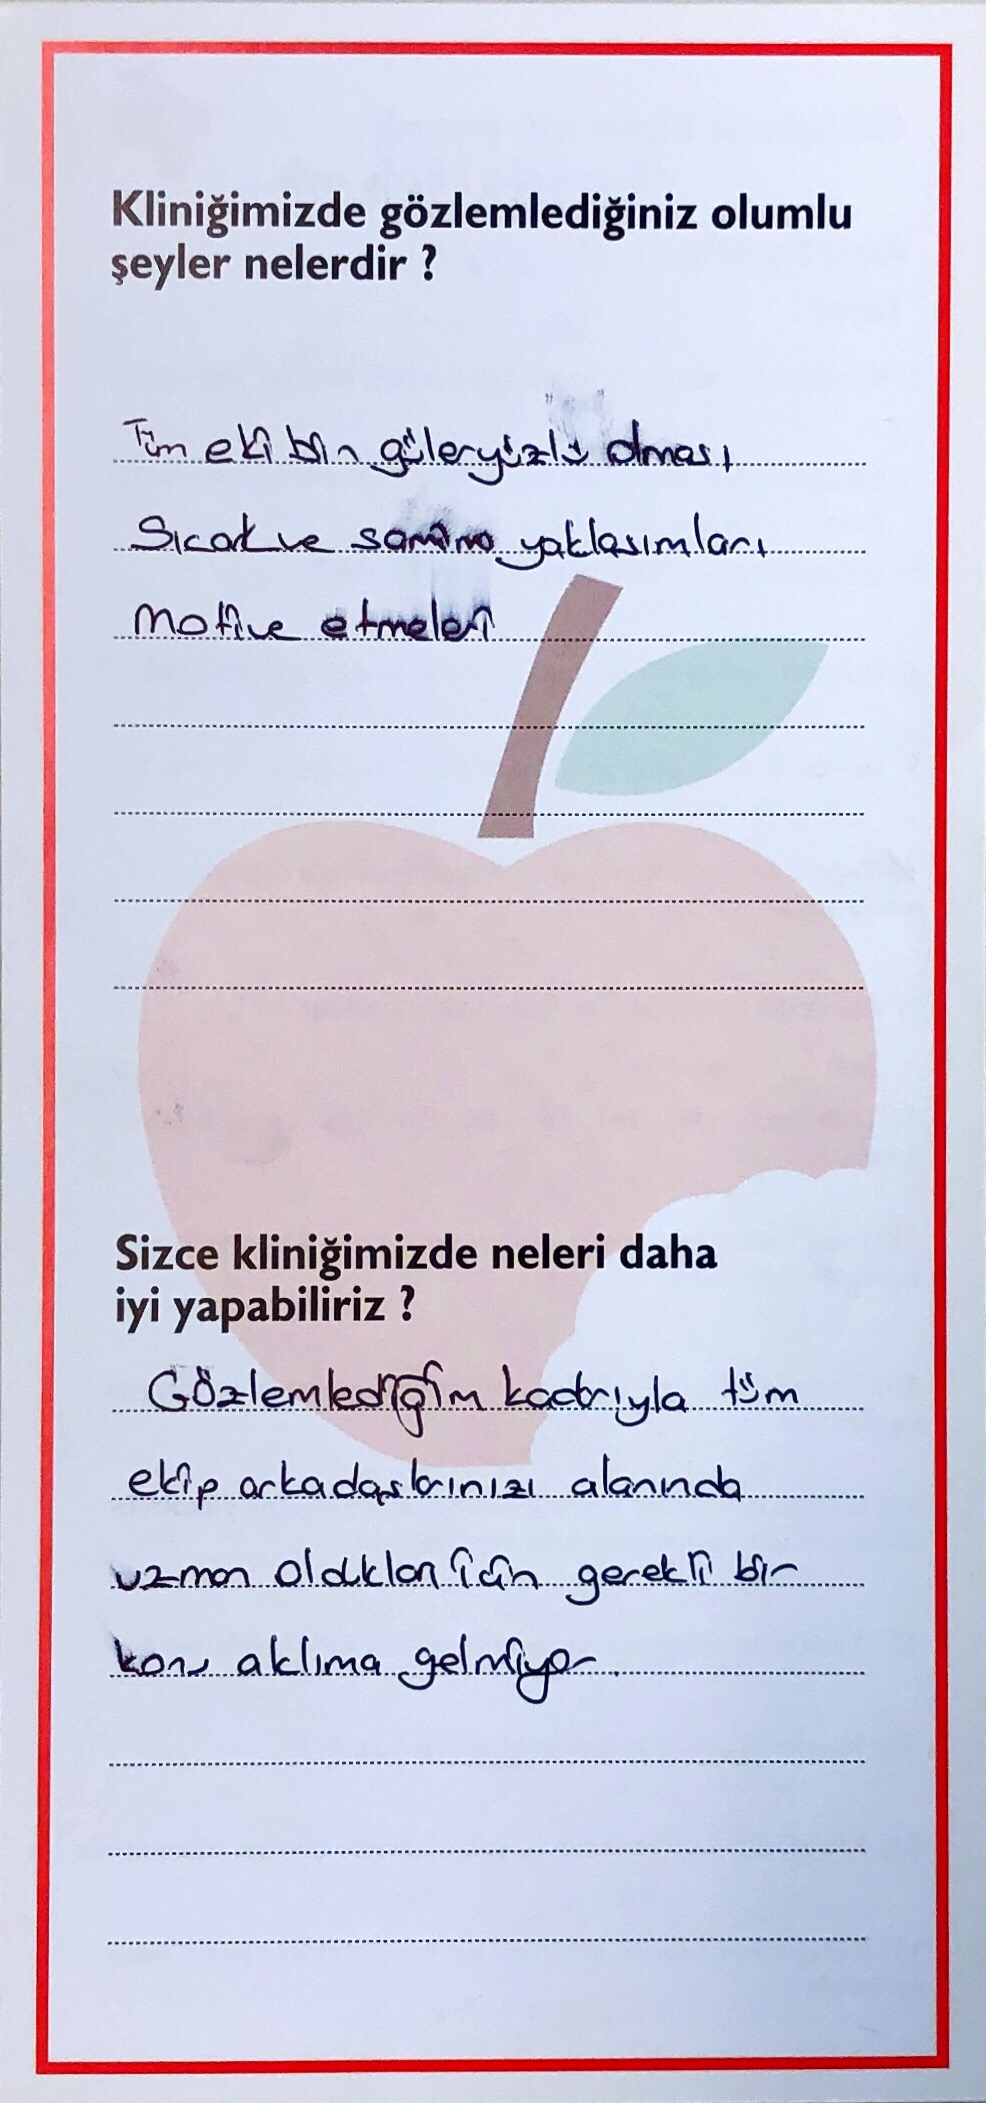 Kliniğimizde gözlemlediğiniz olumlu
şeyler nelerdir ?
Tüm ekibin güleryüzlü olması
Sıcak ve samimi yaklaşımları
Motive etmeleri
Sizce kliniğimizde neleri daha
iyi yapabiliriz ?
Gözlemlediğim kadarıyla tüm
ekip arkadaşlarınızı alanında
uzman oldukları için gerekli bir
konu aklıma gelmiyor.